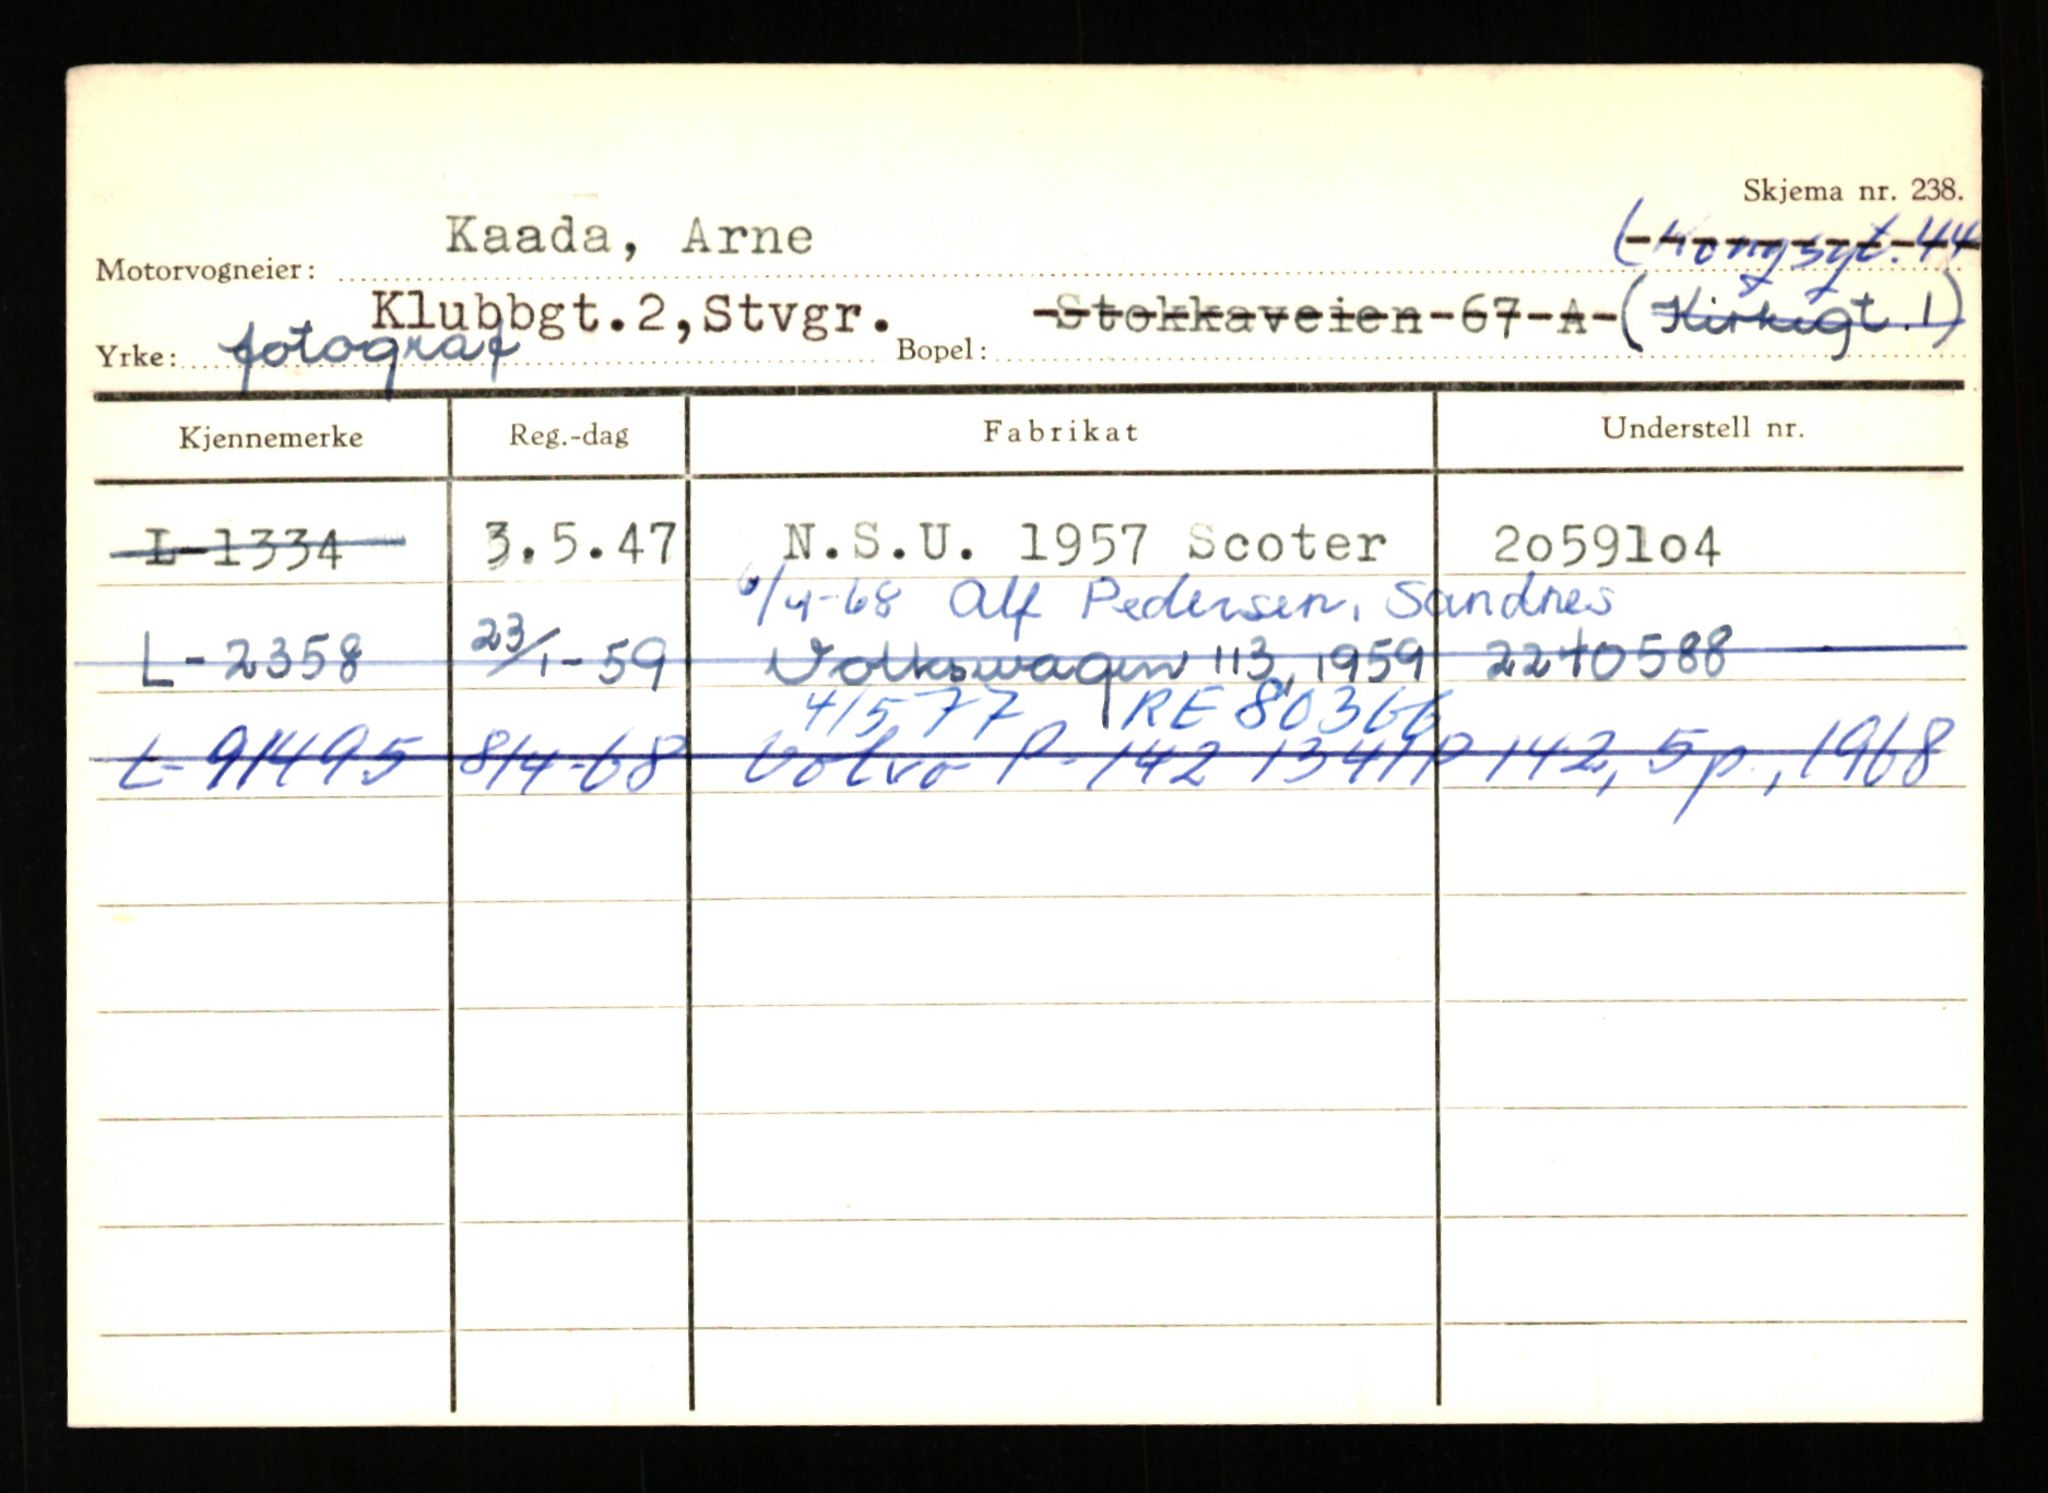 Skjema nr. 238.
Kaada, Arne
(Kongsgt. 44
Motorvogneier:
Klubbgt.2,Stvgr. Stokkaveien 67 A (Kirkegt. 1)
Yrke: fotograf Bopel:
Kjennemerke Reg.-dag Fabrikat Understell nr.
L-1334 3.5.47 N.S.U. 1957 Scoter 2o591o4
6/4-68 Alf Pedersen, Sandnes
L-2358 23/1-59 Volkswagen 113, 1959 2240588
4/5 77 RE 80366
L-91495 8/4-68 Volvo P-142 13411P 142, 5p, 1968